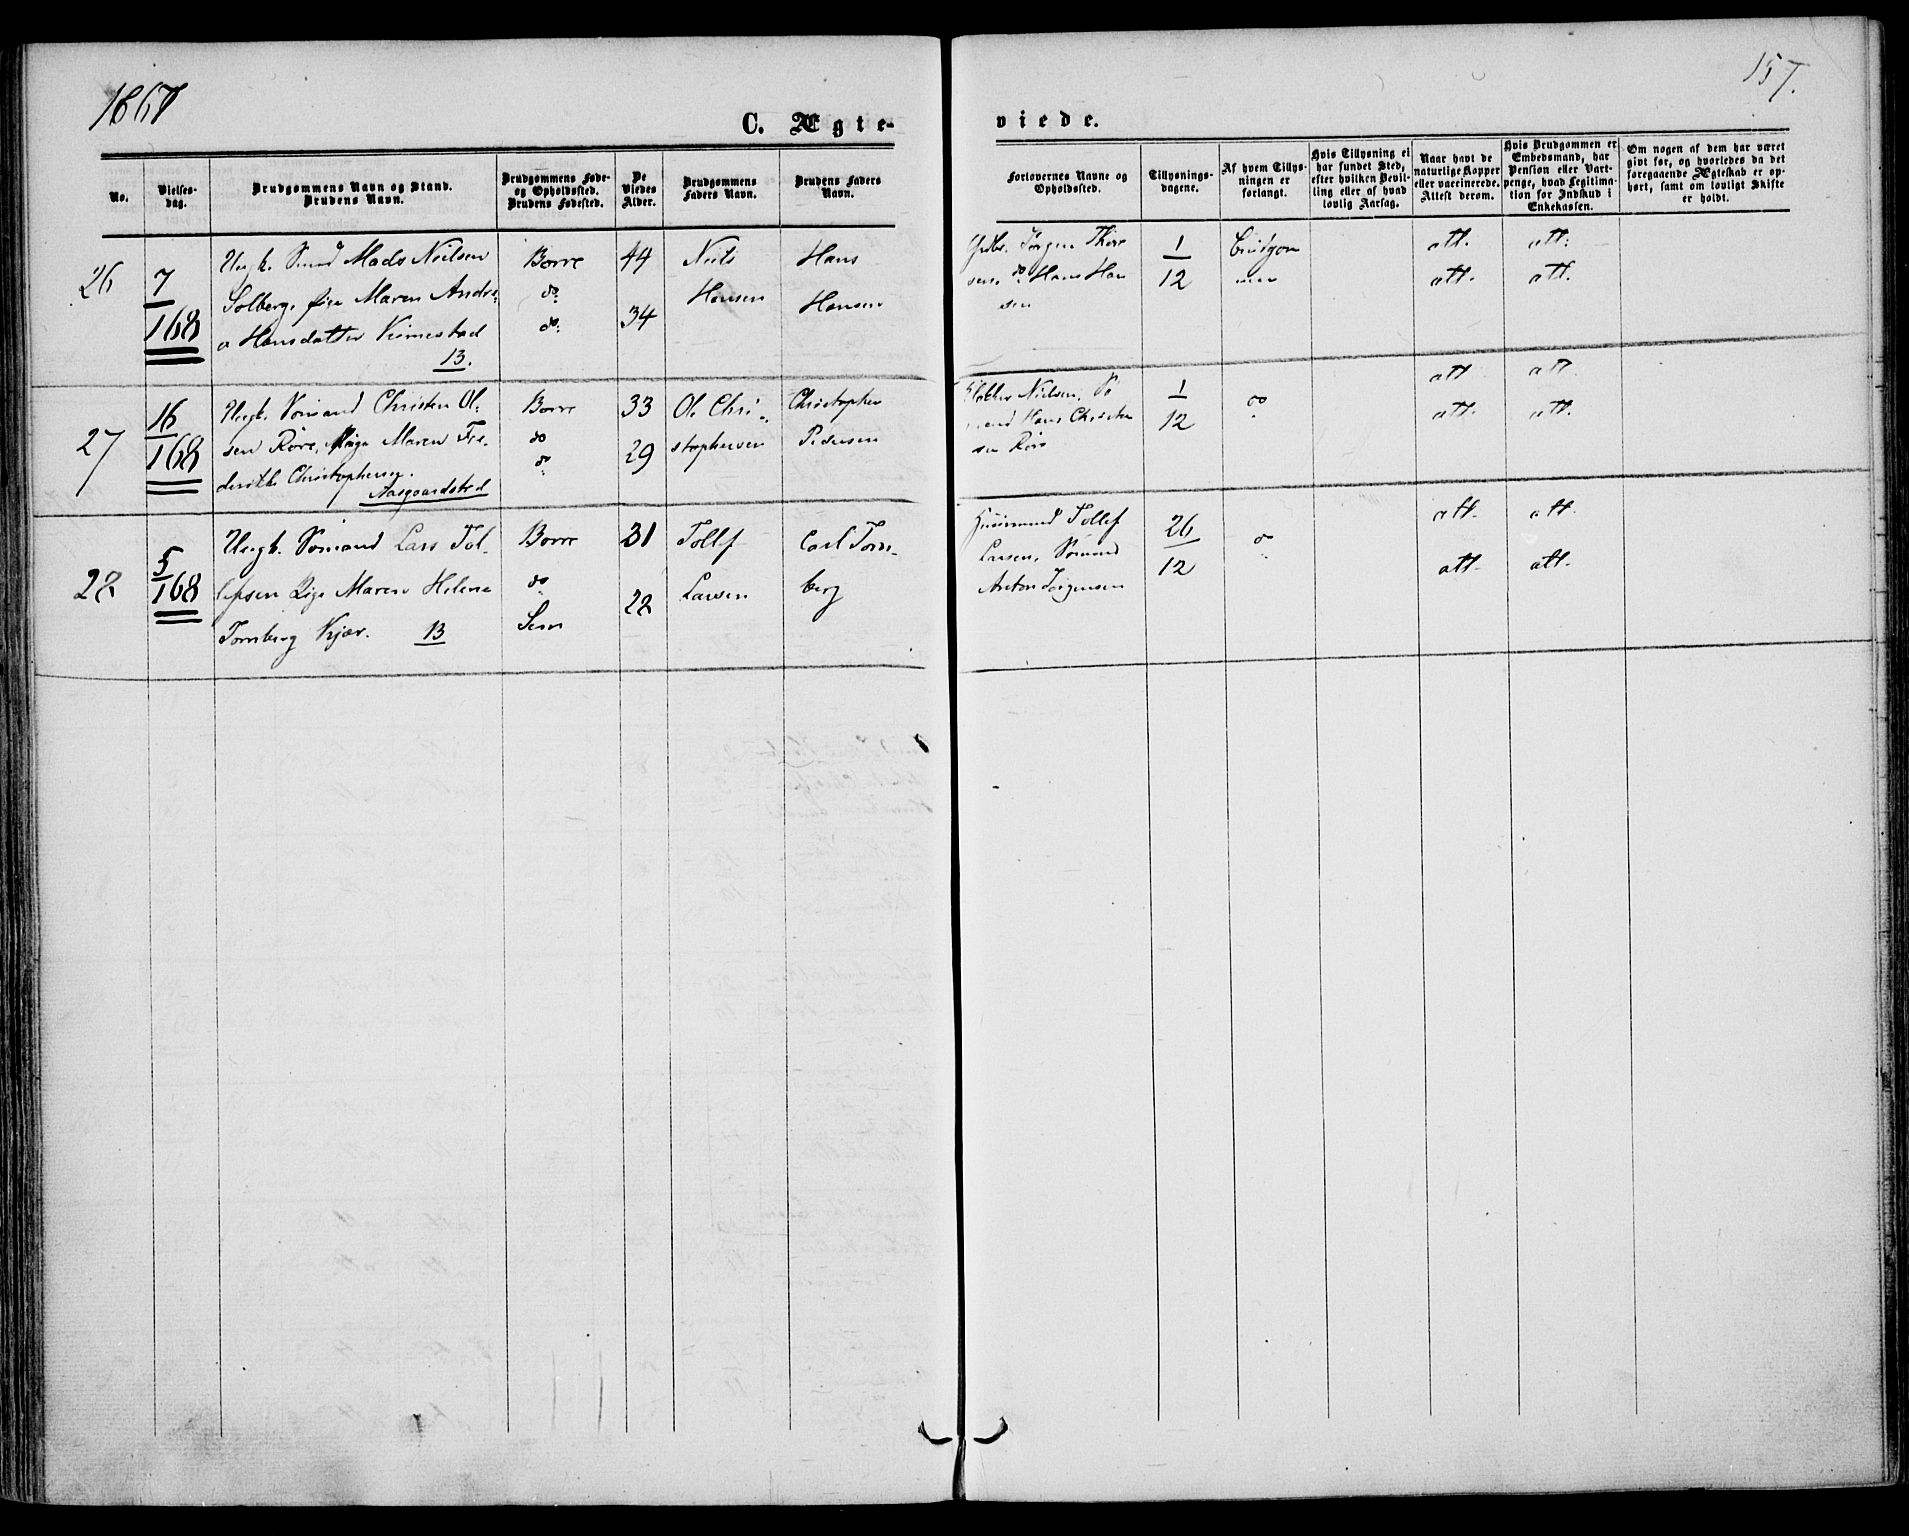 1867
157.
C. Ægte-
viede.
No.
Vielses-
dag.
Brudgommens Navn og Stand.
Brudens Navn.
Brudgommens Føde-
og Opholdssted.
Brudens Fødested.
De
Viedes
Alder.
Brudgommens
Faders Navn.
Brudens Faders
Navn.
Forlovernes Navne og
Opholdssted.
Tillysnings-
dagene.
Af hvem Tillys-
ningen er
forlangt.
Hvis Tillysning ei
har fundet Sted,
efter hvilken Bevil-
ling eller af hvad
lovlig Aarsag.
Naar havt de
naturlige Kopper
eller vaccinerede.
Attest derom.
Hvis Brudgommen er
Embedsmand, har
Pension eller Vart-
penge, hvad Legitima-
tion for Indskud i
Enkekassen.
Om nogen af dem har været
givt før, og hvorledes da det
foregaaende Ægteskab er op-
hørt, samt om lovligt Skifte
er holdt.
26
7
168
Ungk. Smed Mads Nielsen
Solberg, Pige Maren Andre-
a Hansdatter
13.
Borre
do
do
44
34
Niels
Hansen
Hans
Hansen
Jørgen Thore
sen, do Hans Han
sen
1
12
Brudgom
men
att.
att.
att.
att.
27
16
168
Ungk. Sømand Christen Ol-
sen Røre, Pige Maren Fre-
derikke Christophersen.
Aasgaardstrand
Borre
do
do
33
29
Ole Chri-
stophersen
Christopher
Pedersen
Nielsen, Sø
mand Hans Christen
sen Røre
1
12
do
att
att.
att.
att.
28
5
168
Ungk. Sømand Lars Tol-
lefsen Pige Maren Helene
Tornberg Kjær. 13
Borre
do
Sem
31
22
Tollef
Larsen
Carl Torn-
berg
Huusmand Tollef
Larsen, Sømand
Anton Jørgensen
26
12
do
att.
att.
att.
att.